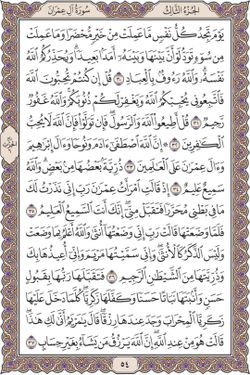 سُورَةُ آلِ عِمْرَانَ الجُزْءُ الثَّالِثُ
يَوْمَ تَجِدُ كُلُّ نَفْسٍ مَّا عَمِلَتْ مِنْ خَيْرٍ مُّحْضَرًا وَمَا عَمِلَتْ
مِن سُوٓءٍ تَوَدُّ لَوْ أَنَّ بَيْنَهَا وَبَيْنَهُۥٓ أَمَدًۢا بَعِيدًا ۗ وَيُحَذِّرُكُمُ ٱللَّهُ
نَفْسَهُۥ ۗ وَٱللَّهُ رَءُوفٌۢ بِٱلْعِبَادِ ٣٠ قُلْ إِن كُنتُمْ تُحِبُّونَ ٱللَّهَ
فَٱتَّبِعُونِى يُحْبِبْكُمُ ٱللَّهُ وَيَغْفِرْ لَكُمْ ذُنُوبَكُمْ ۗ وَٱللَّهُ غَفُورٌ
رَّحِيمٌ ٣١ قُلْ أَطِيعُوا۟ ٱللَّهَ وَٱلرَّسُولَ ۖ فَإِن تَوَلَّوْا۟ فَإِنَّ ٱللَّهَ لَا يُحِبُّ
ٱلْكَٰفِرِينَ ٣٢ ۞ إِنَّ ٱللَّهَ ٱصْطَفَىٰٓ ءَادَمَ وَنُوحًا وَءَالَ إِبْرَٰهِيمَ
وَءَالَ عِمْرَٰنَ عَلَى ٱلْعَٰلَمِينَ ٣٣ ذُرِّيَّةًۢ بَعْضُهَا مِنۢ بَعْضٍ ۗ وَٱللَّهُ
سَمِيعٌ عَلِيمٌ ٣٤ إِذْ قَالَتِ ٱمْرَأَتُ عِمْرَٰنَ رَبِّ إِنِّى نَذَرْتُ لَكَ
مَا فِى بَطْنِى مُحَرَّرًا فَتَقَبَّلْ مِنِّىٓ ۖ إِنَّكَ أَنتَ ٱلسَّمِيعُ ٱلْعَلِيمُ ٣٥
فَلَمَّا وَضَعَتْهَا قَالَتْ رَبِّ إِنِّى وَضَعْتُهَآ أُنثَىٰ وَٱللَّهُ أَعْلَمُ بِمَا وَضَعَتْ
وَلَيْسَ ٱلذَّكَرُ كَٱلْأُنثَىٰ ۖ وَإِنِّى سَمَّيْتُهَا مَرْيَمَ وَإِنِّىٓ أُعِيذُهَا بِكَ
وَذُرِّيَّتَهَا مِنَ ٱلشَّيْطَٰنِ ٱلرَّجِيمِ ٣٦ فَتَقَبَّلَهَا رَبُّهَا بِقَبُولٍ
حَسَنٍ وَأَنۢبَتَهَا نَبَاتًا حَسَنًا وَكَفَّلَهَا زَكَرِيَّا ۖ كُلَّمَا دَخَلَ عَلَيْهَا
زَكَرِيَّا ٱلْمِحْرَابَ وَجَدَ عِندَهَا رِزْقًا ۖ قَالَ يَٰمَرْيَمُ أَنَّىٰ لَكِ هَٰذَا ۖ
قَالَتْ هُوَ مِنْ عِندِ ٱللَّهِ ۖ إِنَّ ٱللَّهَ يَرْزُقُ مَن يَشَآءُ بِغَيْرِ حِسَابٍ ٣٧
٥٤